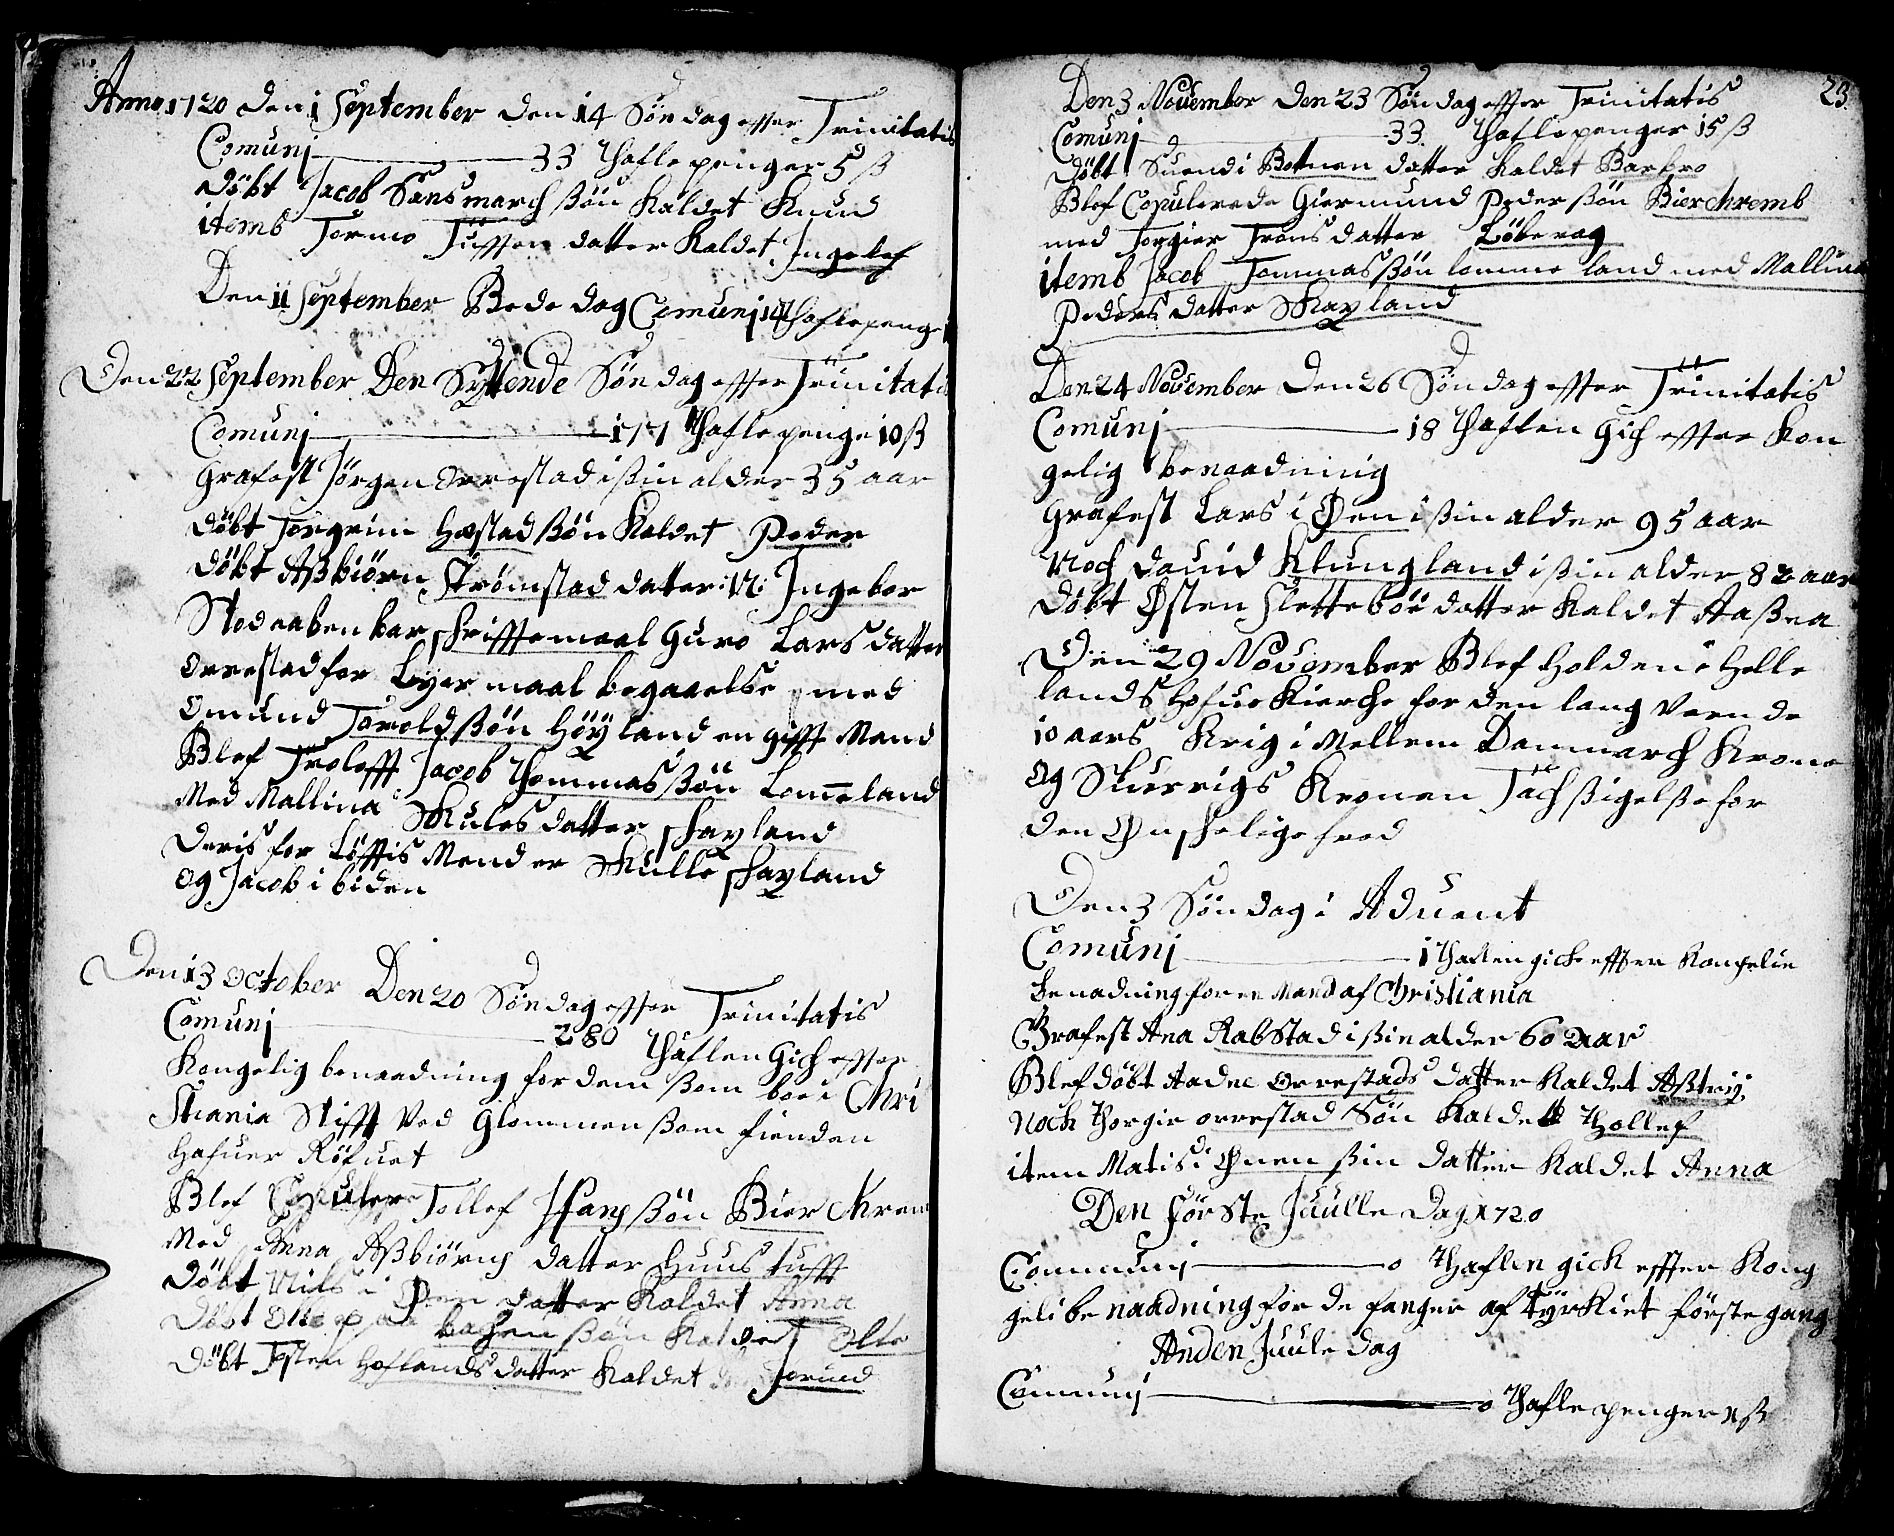 Anno 1720 den 1 September den 14 Söndag effter Trinitatis
Comunj 33 Thaflepenger 5 ß
döbt Jacob Sansmarch ßön Kaldet Knud
itemb Tormo Tüffsen datter Kaldet Ingelef
Den 11 September Bede dag Comunj Thaflepenge
Den 22 September Den Syttende Söndag effter Trinitati
Comunj 171 Thaflepenge 10 ß
Grafest Jörgen Orrestad i ßin alder 35 aar
döbt Torgrim Hæstad ßön Kaldet Peder
döbt Aßbiörn Strömstad datter :N: Ingebor
Stod aabenbar skrifftemaal Guro Lars datter
Orrestad for Leyermaal begaaelse med
Omund Torold ßön Höyland en gifft Mand
Blef Troloft Jacob Thommas ßön Lom̅eland
Med Mallina Skules datter skayland
deris for Löfftis Mender Skulle skayland
Og Jacob ibiden
Den 13 October Den 20 Söndag effter Trinitatis
Comunj 280 Thaflen Gich effter
Kongelig benaadning for dem ßom boe i Chri
Stiania Stifft Ved Glommen ßom fienden
hafuer Röfuet
Blef Tollef Hans ßön Bierchrem
Med Anna Aßbiörns datter Huustufft
döbt Nils i Øen datter Kaldet Anna
döbt Olle paa bachen ßön Kaldet Olle
döbt Esten Hoflands datter Kaldet Jorund
23.
Den 3 November den 23 Söndag effter Trinitatis
Comunj 33 Thaflepenger 15 ß
döbt Suend i Botnen datter Kaldet Barbro
Blef Copulerede Giermund Peder ßön Bierchremb
med Torgier Trons datter Löberag
itemb Jacob Tommas ßön Lommeland med Mallina
Peders datter Skayland
Den 24 November den 26 Söndag effter Trinitatis
Comunj 18 Thaflen Gich effter Kon
gelig benaadning
Grafest Lars i Øen i ßin alder 95 aar
Noch Dauid Klungland i ßin alder 82 aar
döbt Østen Sletteböe datter Kaldet Aaßna
Den 29 November Blef holden i Helle
lands hofue Kierche for den lang Varende
10 aars Krig i Mellem Danmarch Krone
Og Skuerrigs Kronen Tachßigelße for
den Ønskelige fred
Den 3 Söndag i Aduent
Comunj 1 Thaflen gich effter Kongelie
benadning for en Mand af Christiania
Grafest Ana Rabstad i ßin alder 60 aar
Blef döbt Aadne Orrestads datter Kaldet Aßtrij
Noch Thorgir orrestad Sön Kaldett Thollef
item Matis i Ønen ßin datter Kaldet Anna
Den förSte Juulle Dag 1720
Communj 0 Thaflen gick effter Kong
geli benaadning for de fanger af Tÿrkiet förste gang
Anden Juule dag
Comunj 0 Thaflepenger ß